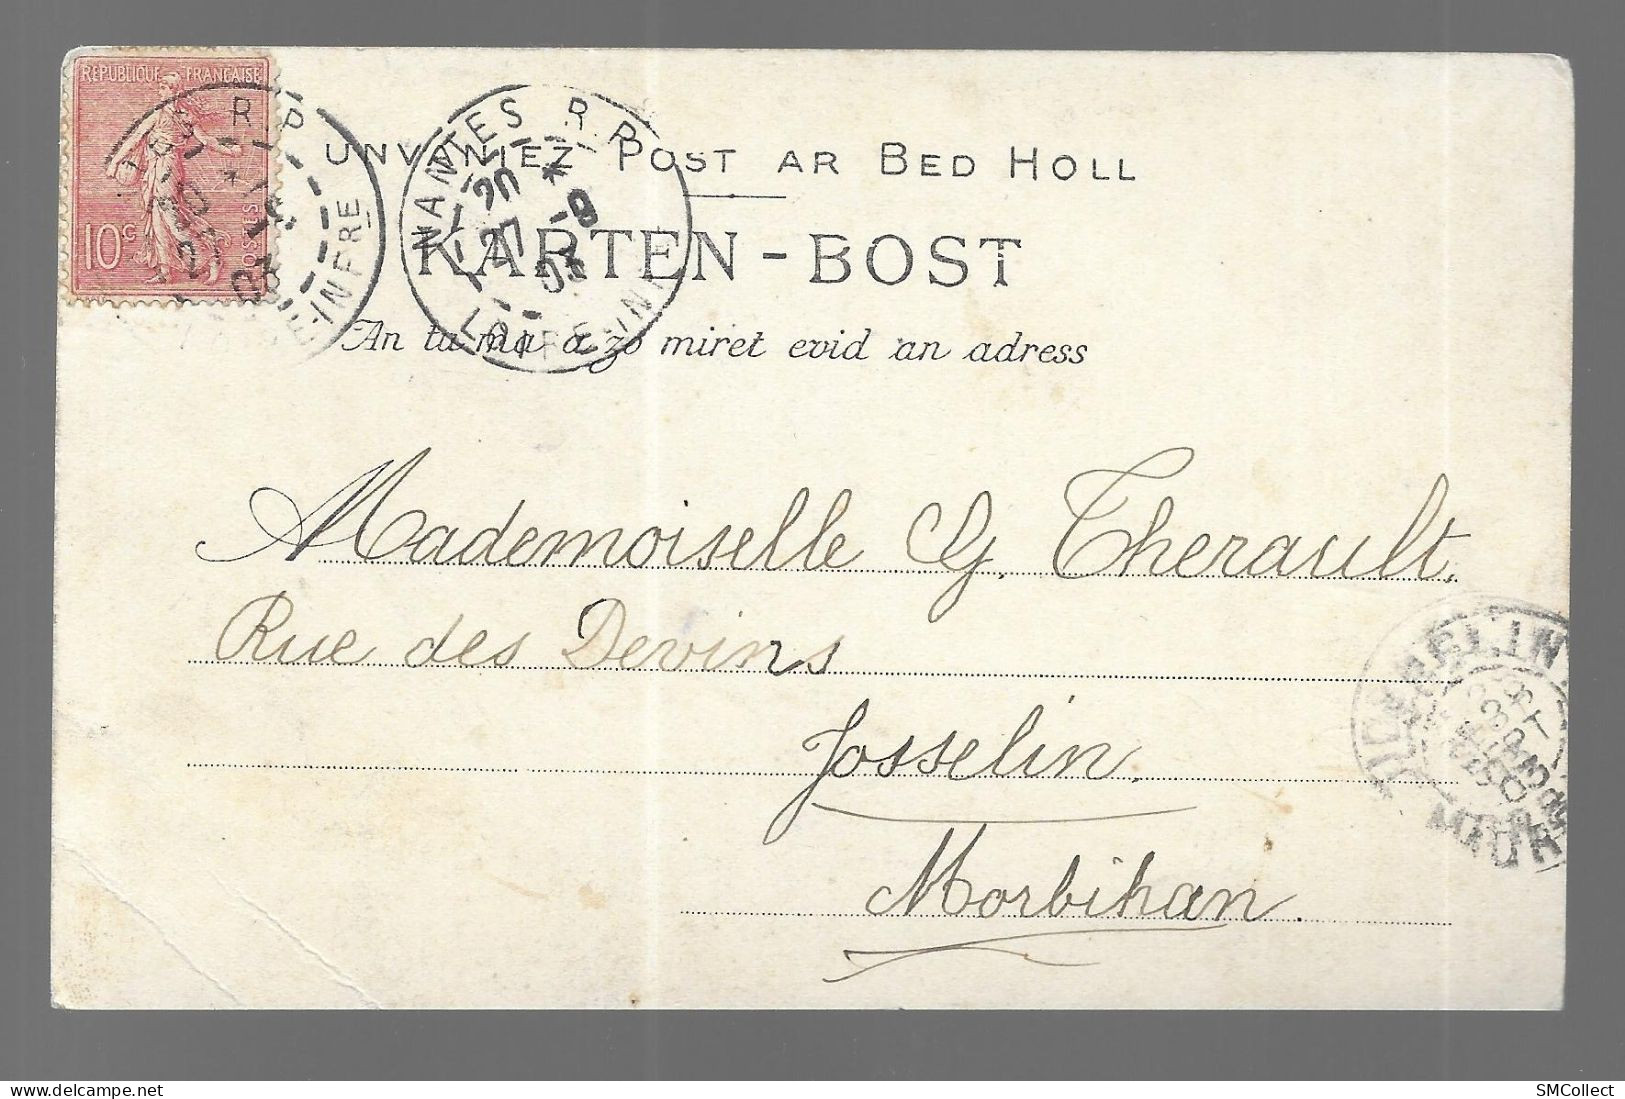 RÉPUBLIQUE FRANÇAISE
10c
POSTES
R.P
RE-INFRE
03
NANTES R.P.
20 *
27 -9
03
LOIRE-INFRE
UNVANIEZ POST AR BED HOLL
KARTEN-BOST
An tu ma a zo miret evid an adress
Mademoiselle G. Therault.
Rue des Devins
Josselin.
Morbihan.
SMCollect